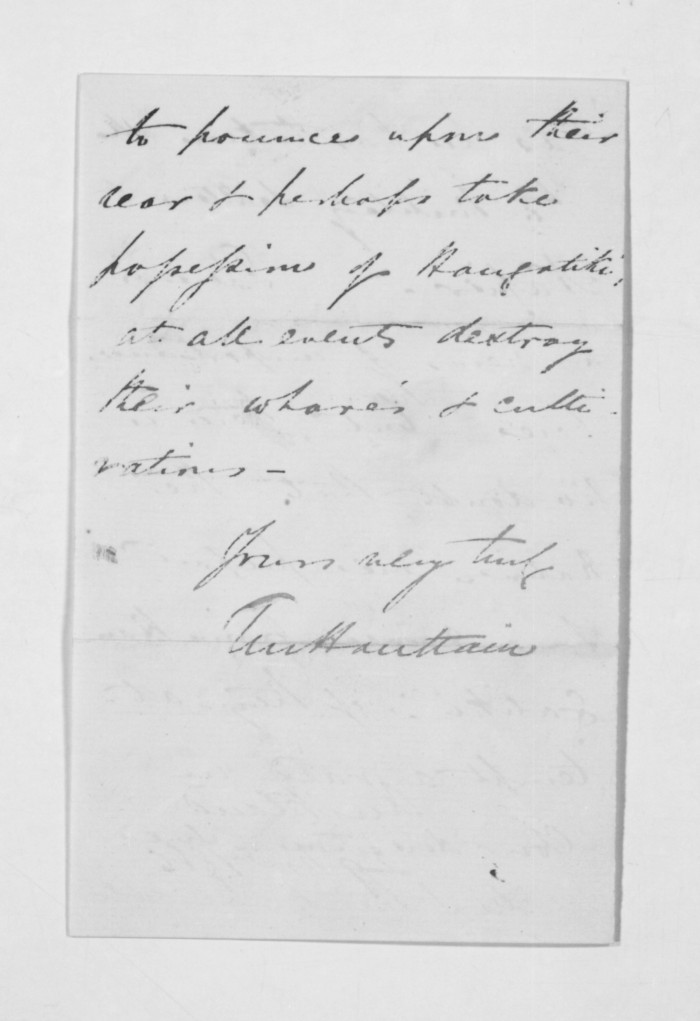 to pounce upon their
rear & perhaps take
possession of Haugatiki,
at all events destroy
their wharés & culti-
vations –
Yours very truly
TM Haultain